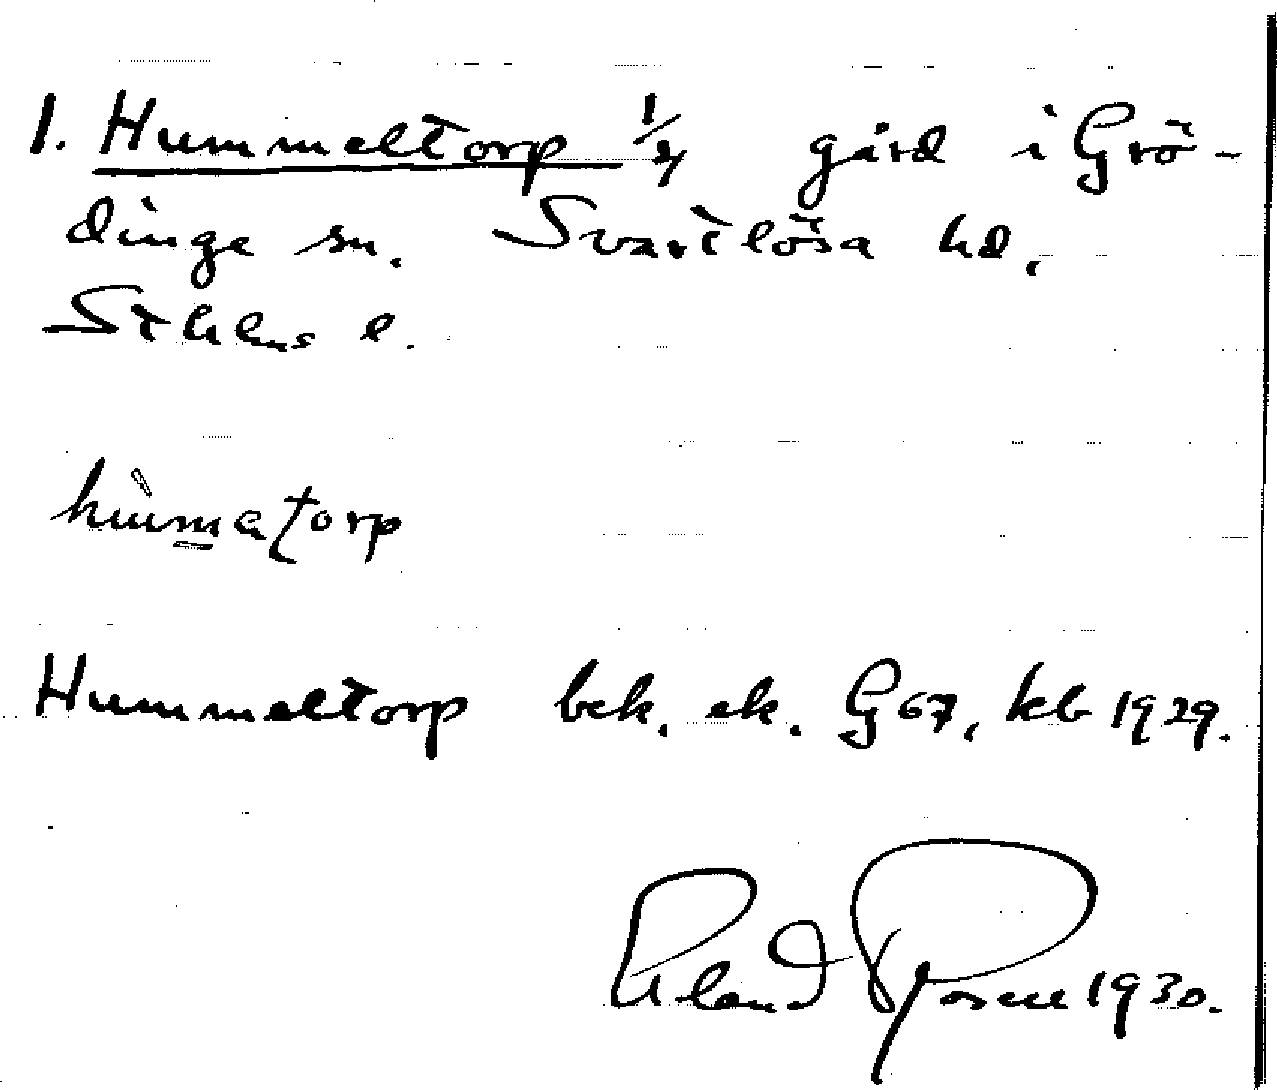 1. Hummeltorp 1/4 gård i Grö-
dinge sn. Svartlösa hd.
Sthlms l.
hùmatorp
Hummeltorp bek. ek. G 67, kb 1929.
Erland Rosell 1930.